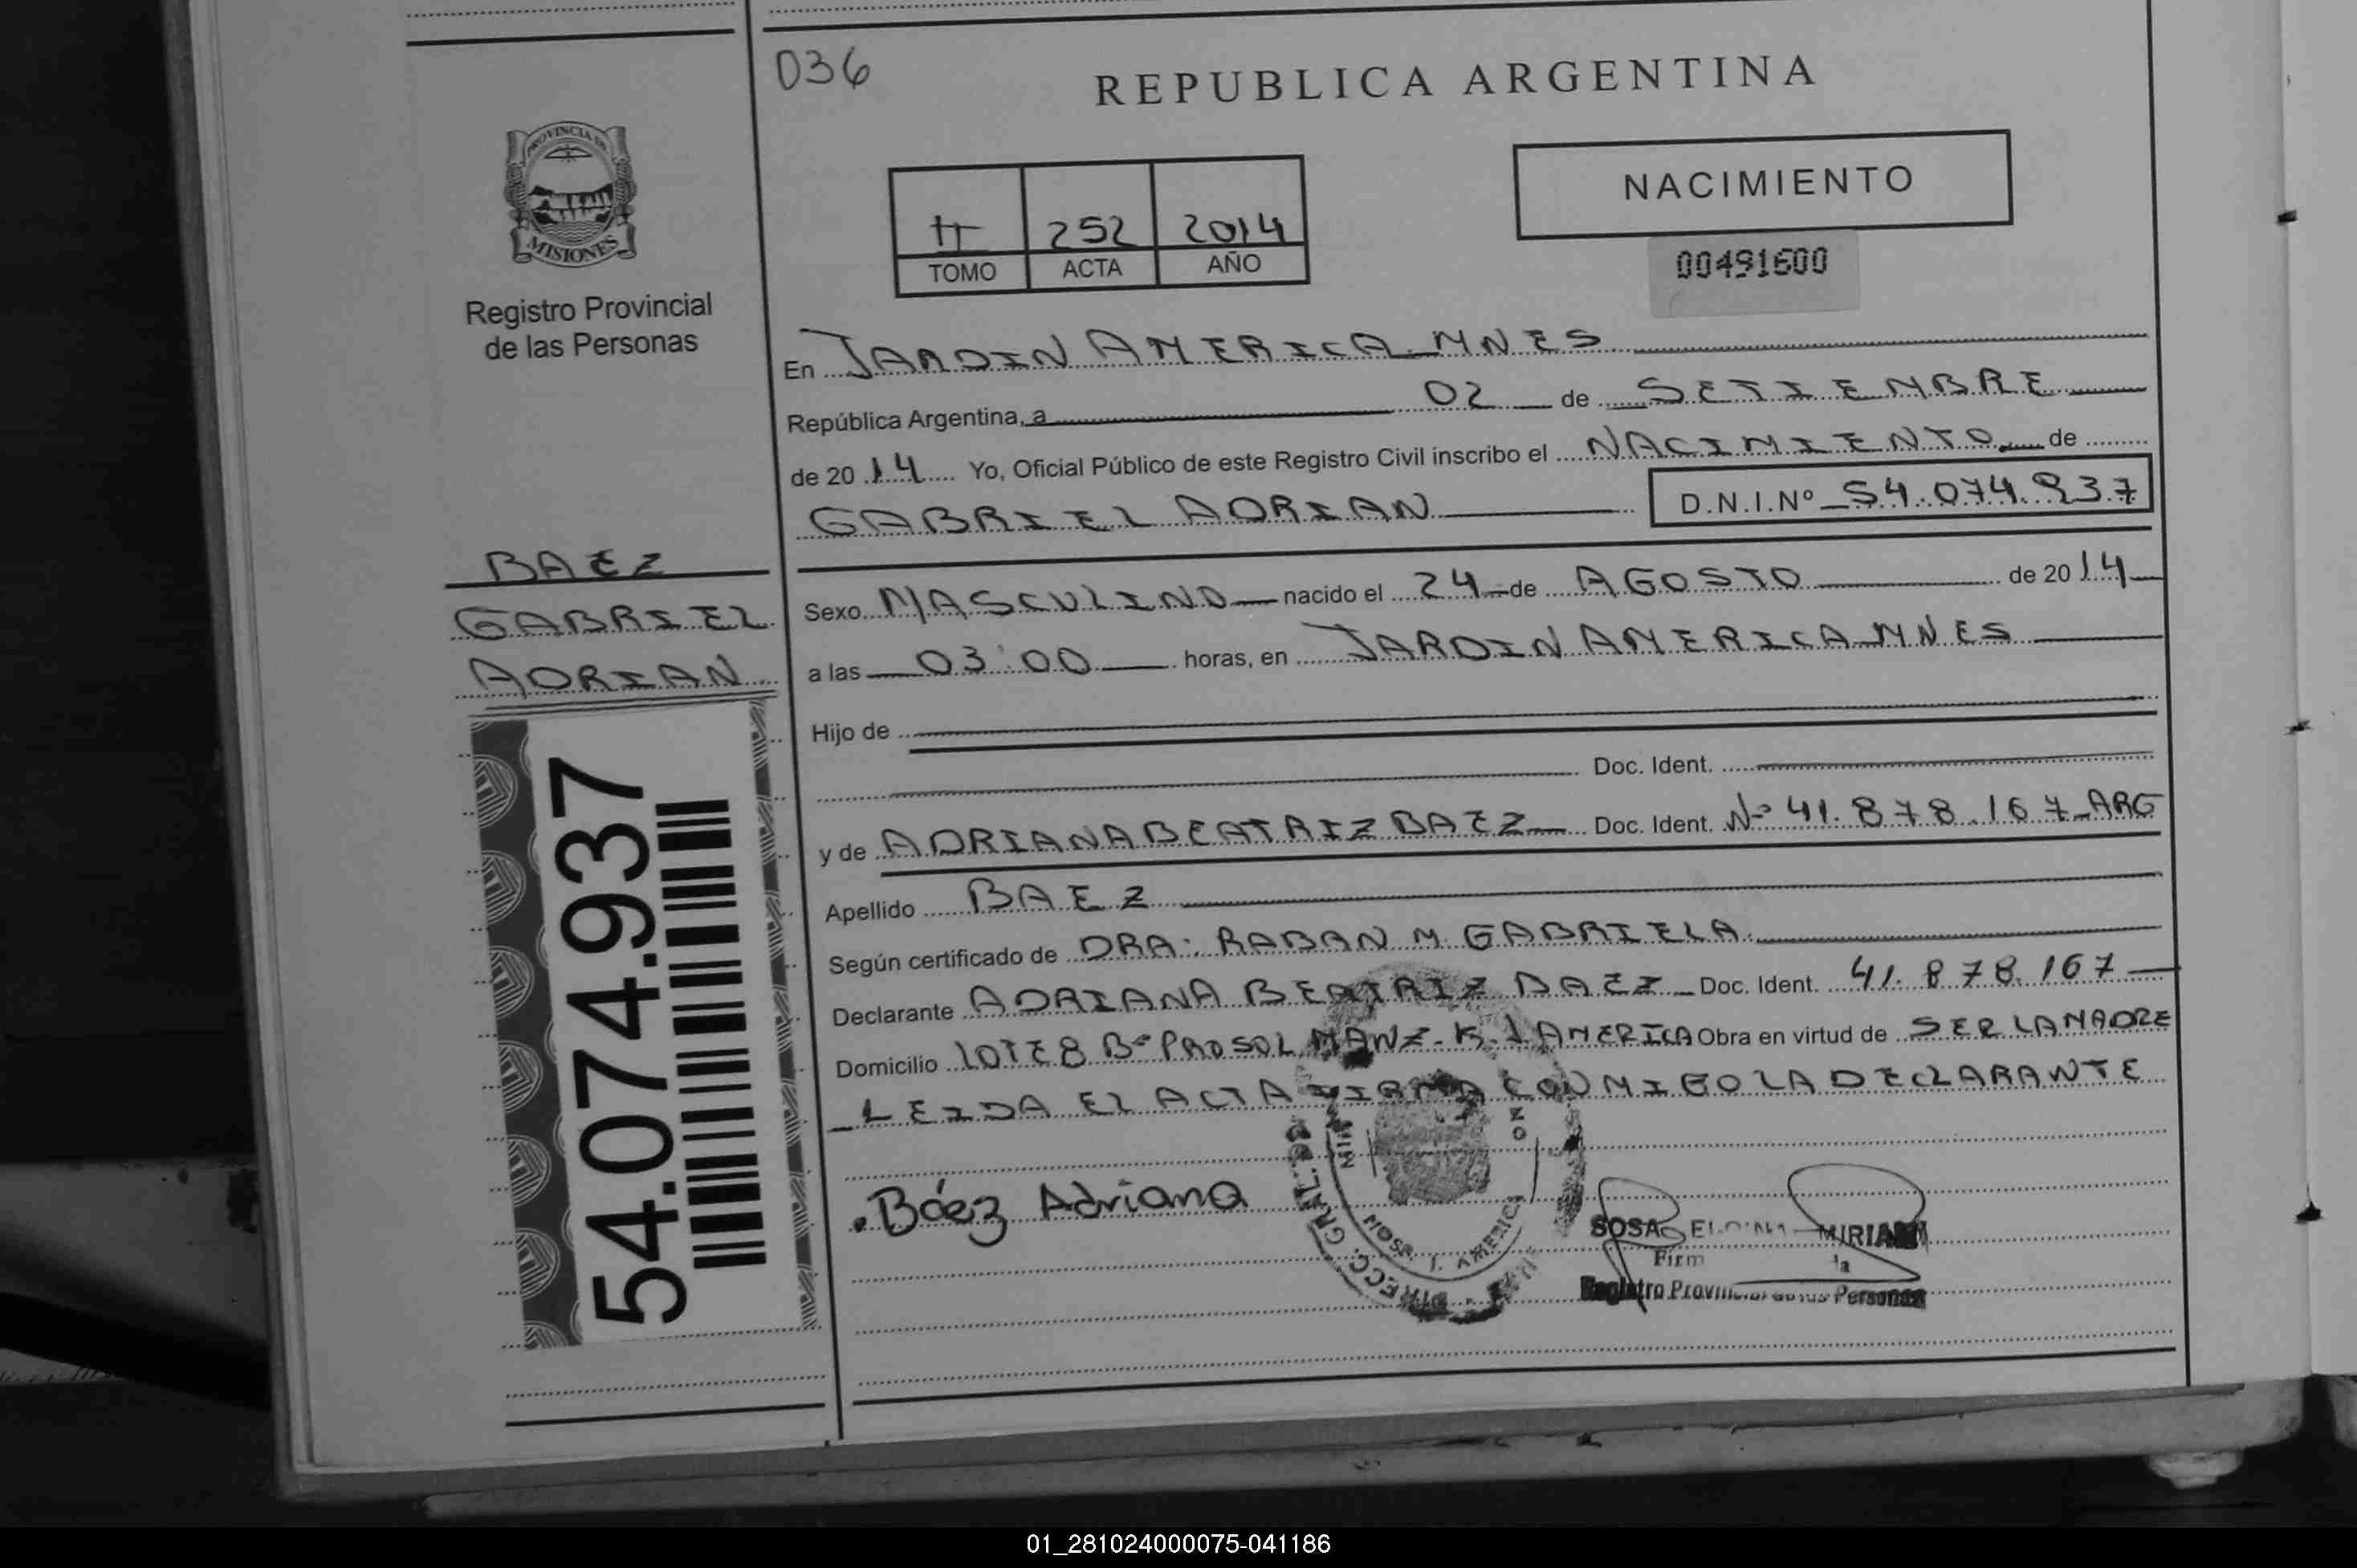 036
REPUBLICA ARGENTINA
PROVINCIA DE
MISIONES
Registro Provincial
de las Personas
II 252 2014
TOMO ACTA AÑO
NACIMIENTO
00491600
En JARDIN AMERICA MNES
República Argentina, a 02 de SETIEMBRE
de 2014 Yo, Oficial Público de este Registro Civil inscribo el NACIMIENTO de
GABRIEL ADRIAN D.N.I.Nº 54.074.937
BAEZ
GABRIEL
ADRIAN
54.074.937
Sexo MASCULINO nacido el 24 de AGOSTO de 2014
a las 03:00 horas, en JARDIN AMERICA MNES
Hijo de
Doc. Ident.
y de ADRIANA BEATRIZ BAEZ Doc. Ident. Nº 41.878.167 ARG
Apellido BAEZ
Según certificado de DRA: RABAN M. GABRIELA
Declarante ADRIANA BEATRIZ BAEZ Doc. Ident. 41.878.167
Domicilio LOTE 8 Bº PROSOL MANZ-K-J AMERICA Obra en virtud de SER LA MADRE
LEIDA EL ACTA FIRMA CONMIGO LA DECLARANTE
Báez Adriana
DIRECC. GRAL. DEL
J. AMERICA
SOSA MIRIAM
Registro Provincial de las Personas
01_281024000075-041186